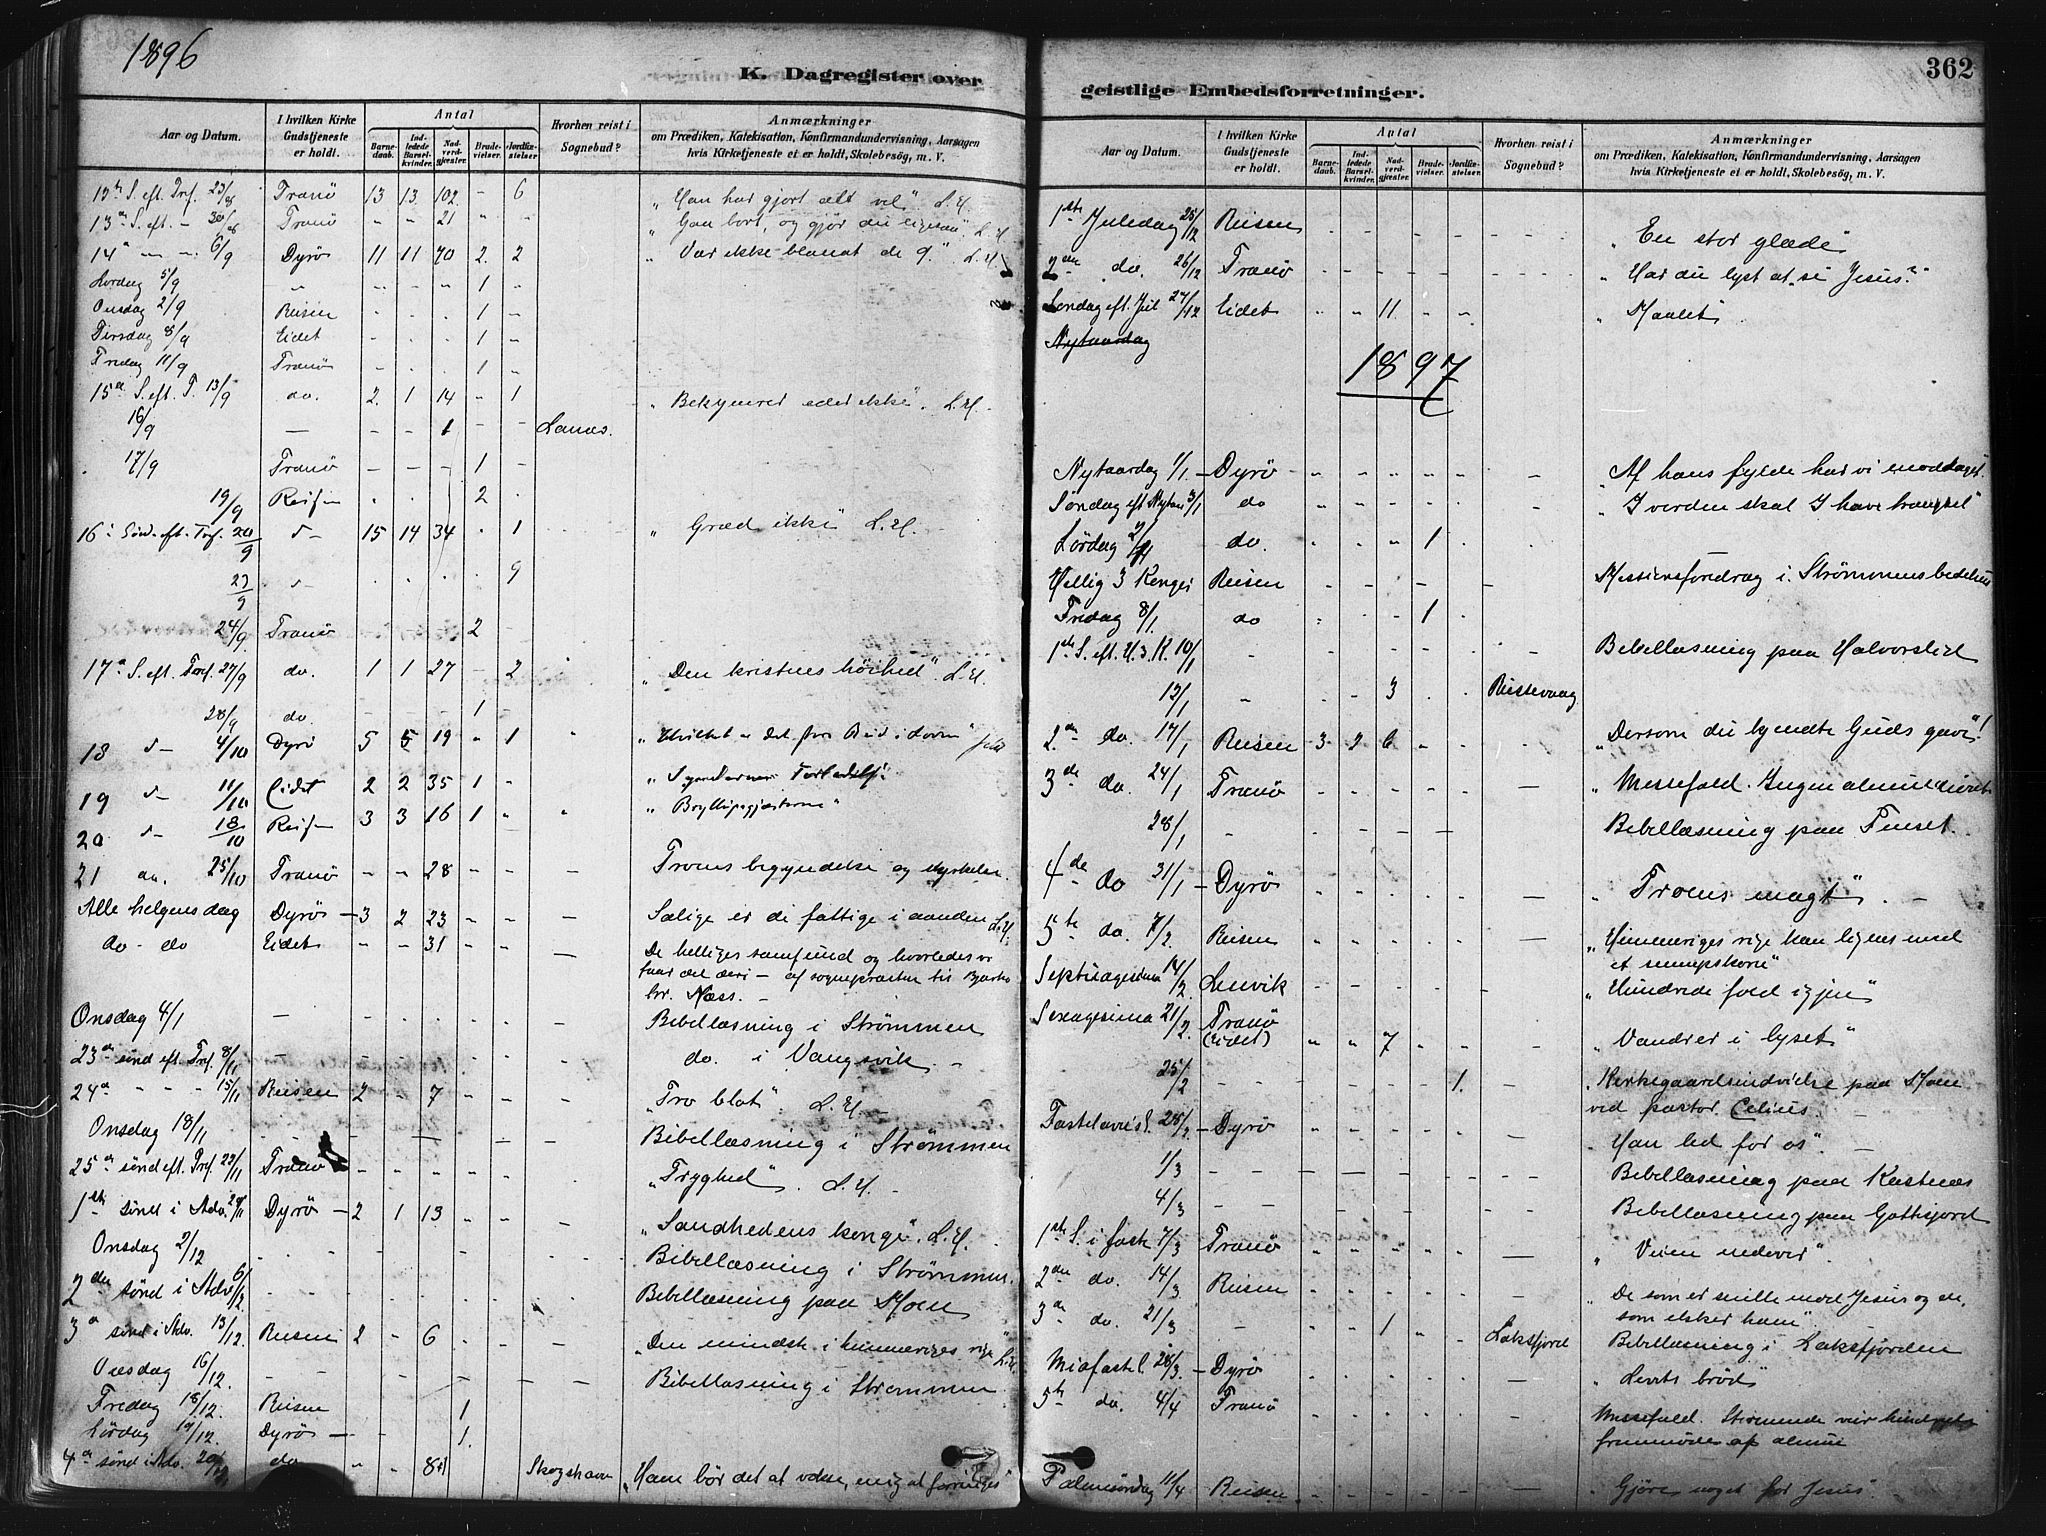 1896
K. Dagregister over
Aar og Datum.
I hvilken Kirke Gudstjeneste er holdt.
Antal
Barnedaab.
Indledede Barselkvinder.
Nadverdgjæster.
Brudevielser.
Jordfæstelser
Hvorhen reist i Sognebud?
Anmærkninger
om Prædiken, Katekisation, Konfirmandundervisning, Aarsagen
hvis Kirketjeneste ei er holdt, Skolebesög, m. V.
12te S. eft. Tref. 23/8 Tranö 13 13 102 - 6 „Han har gjort alt vel". L.H.
13de S. eft. - 30/8 Tranö " " 21 " " „Gaa bort, og gjör du ligesaa". L.H.
14de " " 6/9 Dyrö 11 11 70 2 2 „Var ikke blandt de 9". L.H.
Lördag 5/9 " 1
Onsdag 2/9 Reisen 1
Tirsdag 8/9 Eidet 1
Fredag 11/9 Tranö 1
15de S. eft. T. 13/9 do. 2 1 14 - 1 „Bekymrer eder ikke". L.H.
16/9 — - - 1 - - Lanes.
17/9 Tranö - - - 1 -
19/9 Reisen 2
16de Sönd. eft. Tref. 20/9 d- 15 14 34 . 1 „Græd ikke" L.H.
23/9 d- 9
24/9 Tranö 2
17de S. eft. Tref. 27/9 do. 1 1 27 - 2 „Den kristnes höihed". L.H.
28/9 do. 1
18 d- 4/10 Dyrö 5 5 19 " 1 „Hvilket er det store Bud i loven"
19 d- 11/10 Eidet 2 2 35 1 „Syndernes Forladelse"
20 d- 18/10 Reisen 3 3 16 1 „Bryllupsgjæsterne"
21 do. 25/10 Tranö - - 28 - - Troens begyndelse og styrkelse.
Alle helgens dag Dyrö - 3 2 23 - - - Salige er de fattige i aanden L.H.
do - do Eidet - - 31 - - - De helliges samfund og hvorledes vi
faar del deri - af sognepræsten til
hr. Næss. -
Onsdag 4/11 — Bibellæsning i Strömmen
23de sönd eft. Tref. 8/11 — do. i Vangsvik. -
24de " - - 15/11 Reisen 2 - 7 „Tro blot". L.H. -
Onsdag 18/11 Bibellæsning i Strömmen
25de sönd eft. Tref. 22/11 Tranö „Tryghed". L.H. -
1ste sönd i Adv. 29/11 Dyrö - 2 1 13 „Sandhedens konge". L.H.
Onsdag 2/12 Bibellæsning i Strömmen.
2den sönd i Adv. 6/12 Bibellæsning paa Moen
3de sönd i Adv. 13/12 Reisen 2 - 6 „Den mindste i himmeriges rige" L.H.
Onsdag 16/12 Bibellæsning i Strömmen
Fredag 18/12 Reisen 1
Lördag 19/12 Dyrö - 1.
4de sönd i Adv. 20/12 do " 8+1 Skogshavn „Ham bör det at vokse, mig at forringes"
362
geistlige Embedsforretninger.
Aar og Datum.
I hvilken Kirke Gudstjeneste er holdt.
Antal
Barnedaab.
Indledede Barselkvinder.
Nadverdgjæster.
Brudevielser.
Jordfæstelser.
Hvorhen reist i Sognebud?
Anmærkninger
om Prædiken, Katekisation, Konfirmandundervisning, Aarsagen
hvis Kirketjeneste ei er holdt, Skolebesög, m. V.
1ste Juledag 25/12 Reisen „En stor glæde"
2den do. 26/12 Tranö „Har du lyst at se Jesus?"
Söndag eft. Jul 27/12 Eidet " " 11 „Maalet".
Nytaarsdag
1897
Nytaarsdag 1/1 - Dyrö „Af hans fylde har vi modtaget".
Söndag eft Nytaar 3/1 do „I verden skal I have trængsel"
Lördag 2/1 do. 1
Hellig 3 Konger Reisen Missionsforedrag i Strömmens bedehus
Fredag 8/1 do 1
1ste S. eft. H. 3. K. 10/1 Bibellæsning paa Halvorslet
12/1 " 3 Russevaag
2den do. 17/1 Reisen 3 3 6 „Dersom du kjendte Guds gave"!
3de do. 24/1 Tranö — „Messefald. Ingen almue
28/1 Bibellæsning paa Finset.
4de do 31/1 - Dyrö „Troens magt". -
5te do. 7/2 Reisen — „Himmeriges rige kan lignes med
et sennepskorn"
Septuagesima 14/2 Lenvik „Hundrede fold igjen"
Sexagesima 21/2 Tranö (Eidet) " " 7 „Vandrer i lyset"
25/2 1. Kirkegaardsindvielse paa Moen
ved pastor Celius. -
Fastelavns. 28/2 - Dyrö „Han led for os". -
1/3 Bibellæsning paa Kastnæs
4/3 Bibellæsning paa Gottfjord
1ste S. i faste 7/3 Tranö — „Veien nedover".
2den do. 14/3 Reisen - „De som er snille mod Jesus og de,
som elsker ham".
3de do. 21/3 - 1 Laksfjord Bibellæsning i Laksfjorden
Midfastel. 28/3 - Dyrö „Livets bröd"
5te do. 4/4 Tranö Messefald. Stormende veir hindrede
fremmöde af almue
Palmesöndag 11/4 Reisen — „Gjöre noget for Jesus"